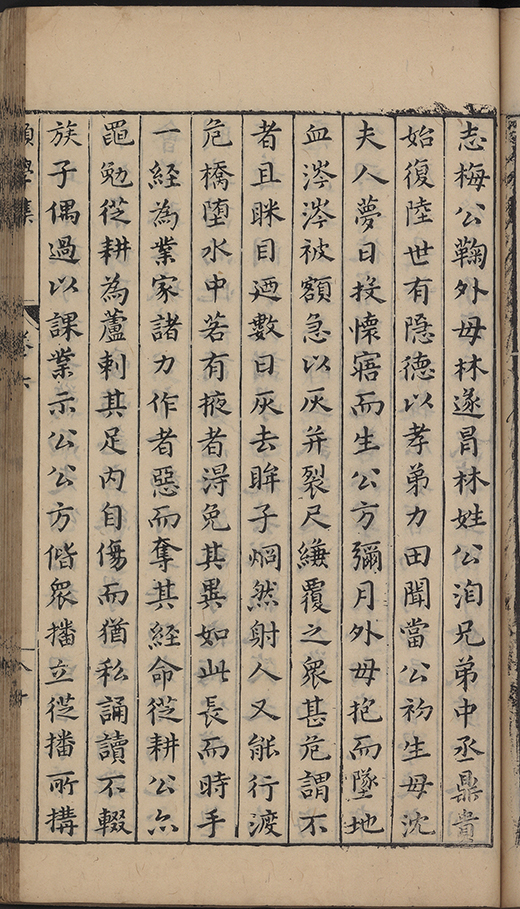 志梅公鞠外母林遂冐林姓公洎兄弟中丞鼎貴
始復陸世有隐德以孝弟力田聞當公初生母沈
夫人夢日投懷寤而生公方彌月外母抱而墜地
血涔涔被額急以灰并裂尺縑覆之衆甚危謂不
者且眯目廼數日灰去眸子烱然射人又能行渡
危橋堕水中若有掖者淂免其異如此長而時手
一經為業家諸力作者惡而奪其經命從耕公亦
黽勉從耕為蘆刺其足内自傷而猶私誦讀不輟
族子偶過以課業示公公方偕衆播立從播所搆
學集